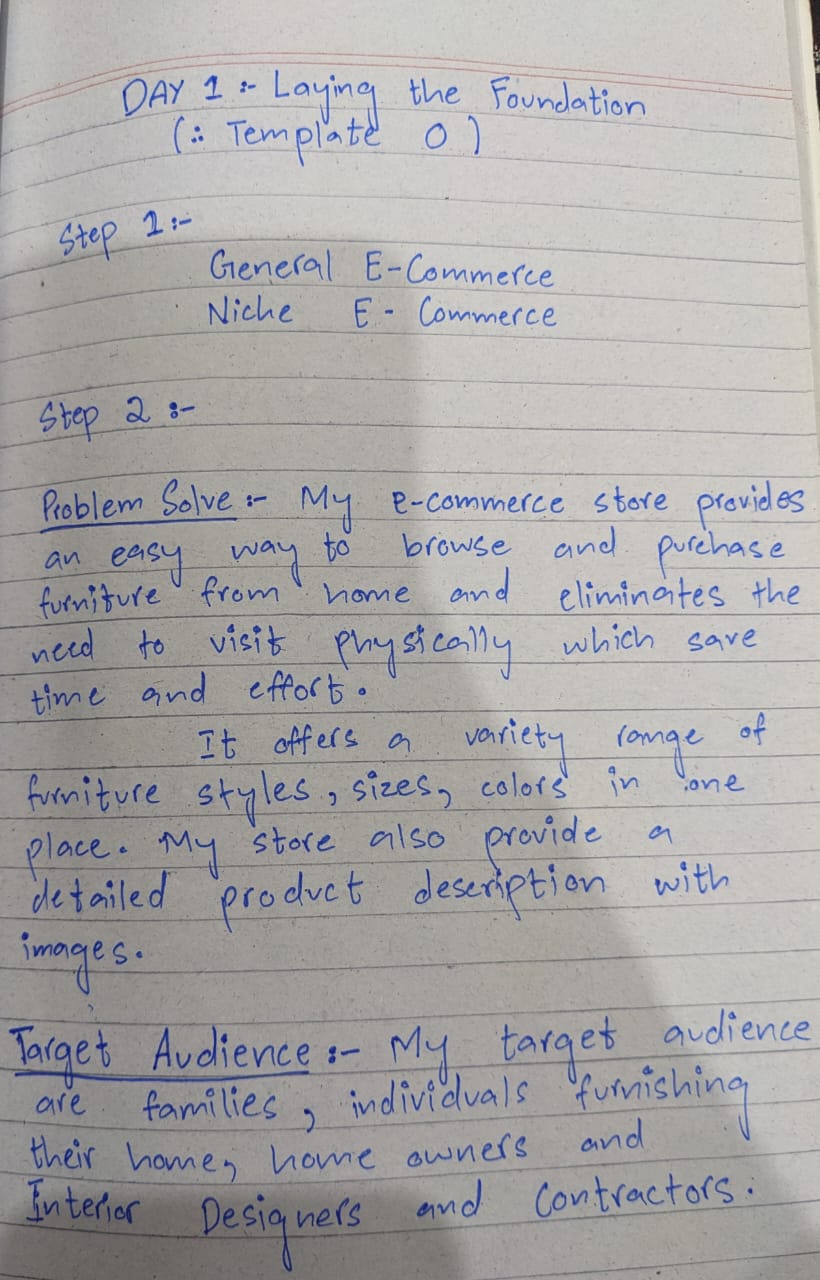 DAY 1 :- Laying the Foundation
(: Template 0 )
Step 1 :-
General E-Commerce
Niche E - Commerce
Step 2 :-
Problem Solve :- My e-commerce store provides
an easy way to browse and purchase
furniture from home and eliminates the
need to visit physically which save
time and effort.
It offers a variety range of
furniture styles, sizes, colors in one
place. My store also provide a
detailed product description with
images.
Target Audience :- My target audience
are families, individuals furnishing
their home, home owners and
Interior Designers and Contractors.